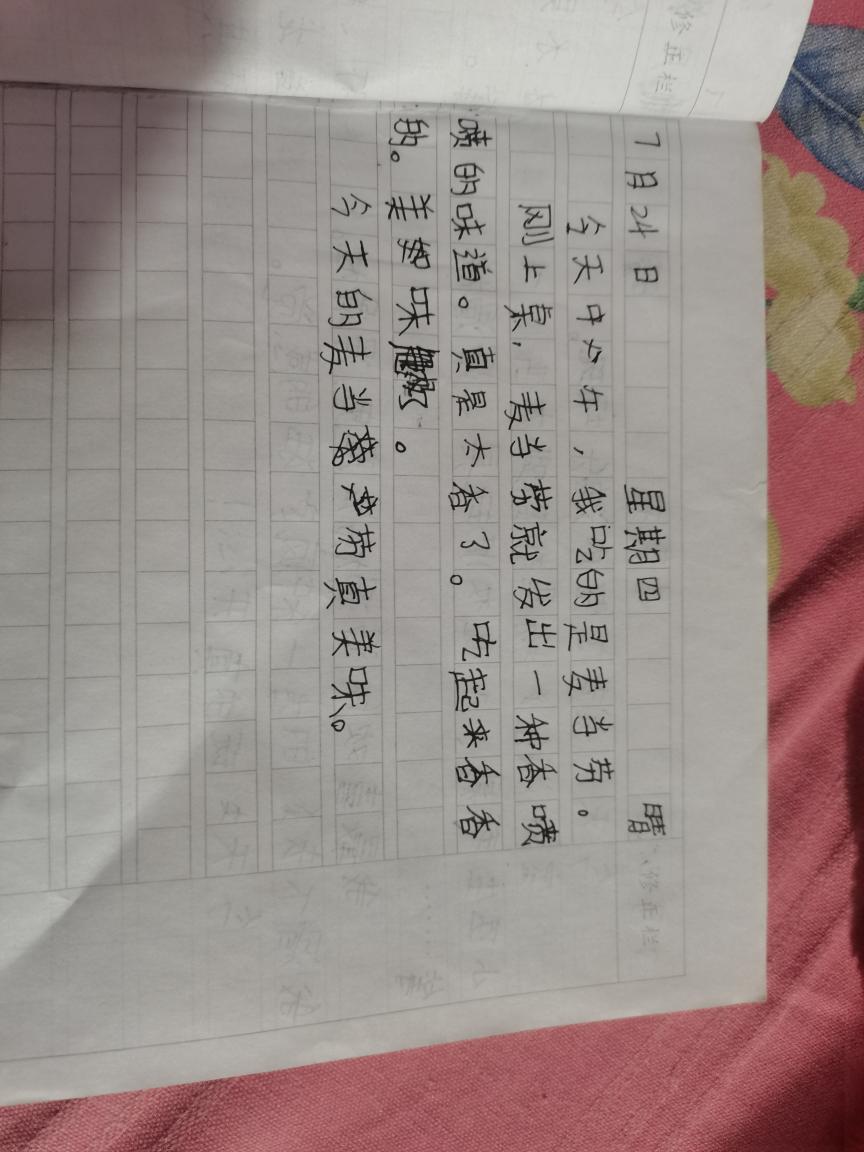 7月24日 星期四 晴
今天中午,我吃的是麦当劳。
刚上桌,麦当劳就发出一种香喷
喷的味道。真是太香了。吃起来香香
的。美味了。
今天的麦当劳真美味。
修正栏
修正栏